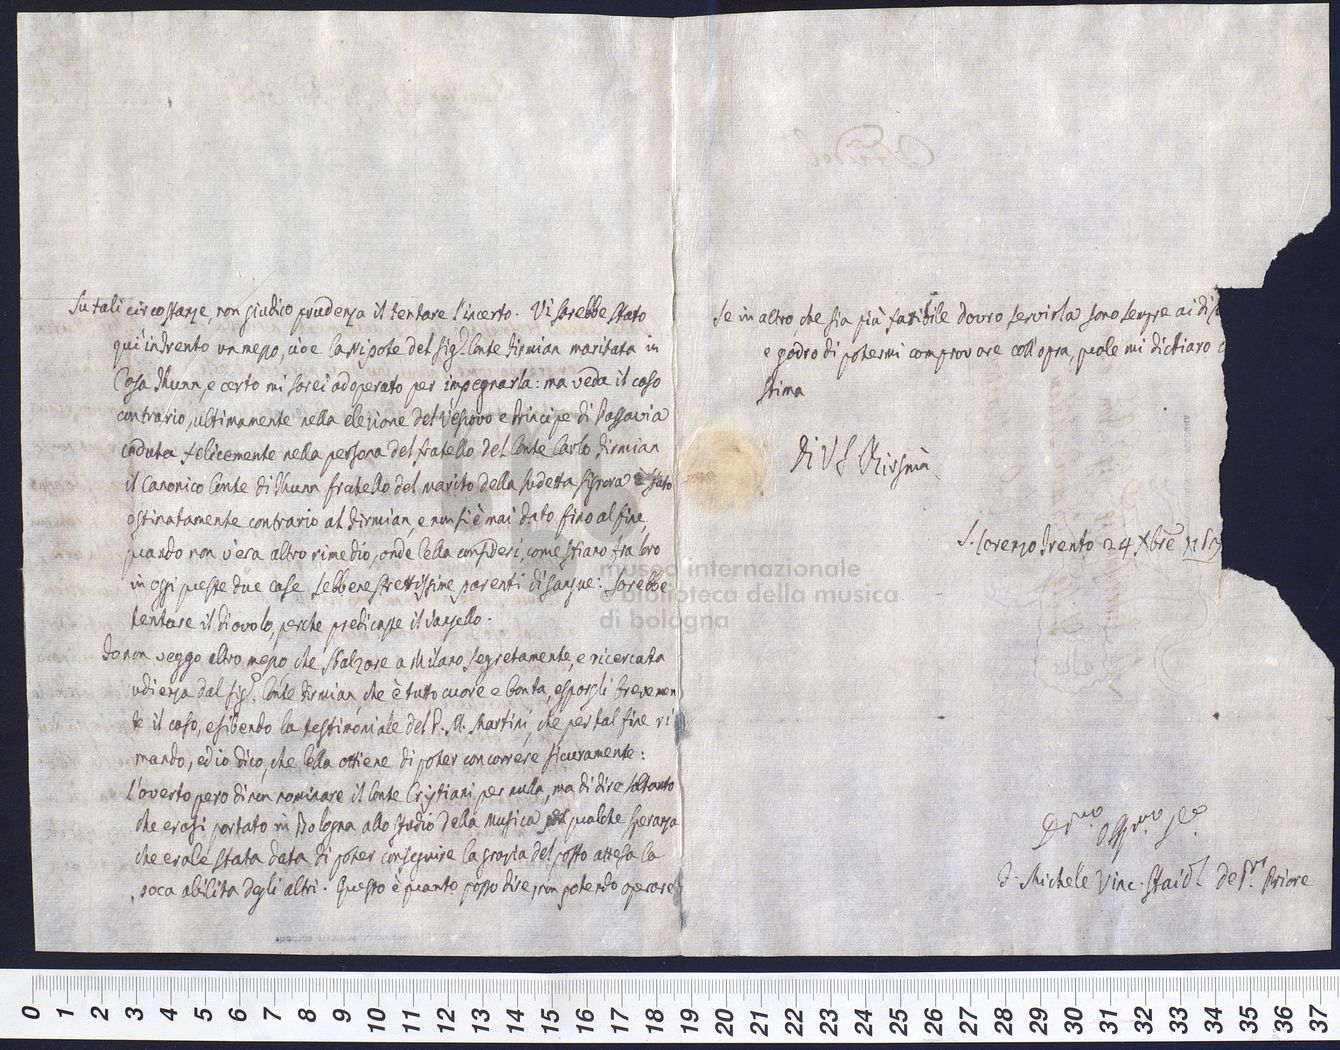 Su tali circostanze, non giudico prudenza il tentare l'incerto. Vi sarebbe stato
qui in Trento un mezzo, cioè la Nipote del Sig.r Conte Firmian maritata in
Casa Thunn, e certo mi sarei adoperato per impegnarla: ma veda il caso
contrario, ultimamente nella elezione del Vescovo e Principe di Passavia
caduta felicemente nella persona del fratello del Conte Carlo Firmian
il Canonico Conte di Thunn fratello del marito della sudetta Signora è stato
ostinatamente contrario al Firmian, e non si è mai dato fino al fine,
quando non v'era altro rimedio, onde Ella consideri, come stiano fra loro
in oggi queste due case sebbene strettissime parenti di sangue: sarebbe
tentare il diavolo, perche predicasse il Vangello.
Io non veggo altro mezzo, che sbalzare a Milano segretamente, e ricercata
udienza dal Sig.r Conte Firmian, che è tutto cuore e bontà, esporgli brevemen
te il caso, esibendo la testimoniale del P. M. Martini, che per tal fine ri
mando, ed io dico, che Ella ottiene di poter concorrere sicuramente:
L'averto però di non nominare il Conte Cristiani per nulla, ma di dire soltanto
che erasi portato in Bologna allo studio della Musica qualche speranza
che erale stata data di poter conseguire la grazia del posto attesa la
poca abilita degli altri. Questo è quanto posso dire, non potendo operare
Se in altro, che sia più fattibile dovro servirla sono sempre ai di
e godro di potermi comprovare coll'opra, quale mi dichiaro
stima
Di V S
S. Lorenzo Trento 24 Xbre
museo internazionale
e biblioteca della musica
di bologna
D. Michele Vinc. Priore
0 1 2 3 4 5 6 7 8 9 10 11 12 13 14 15 16 17 18 19 20 21 22 23 24 25 26 27 28 29 30 31 32 33 34 35 36 37